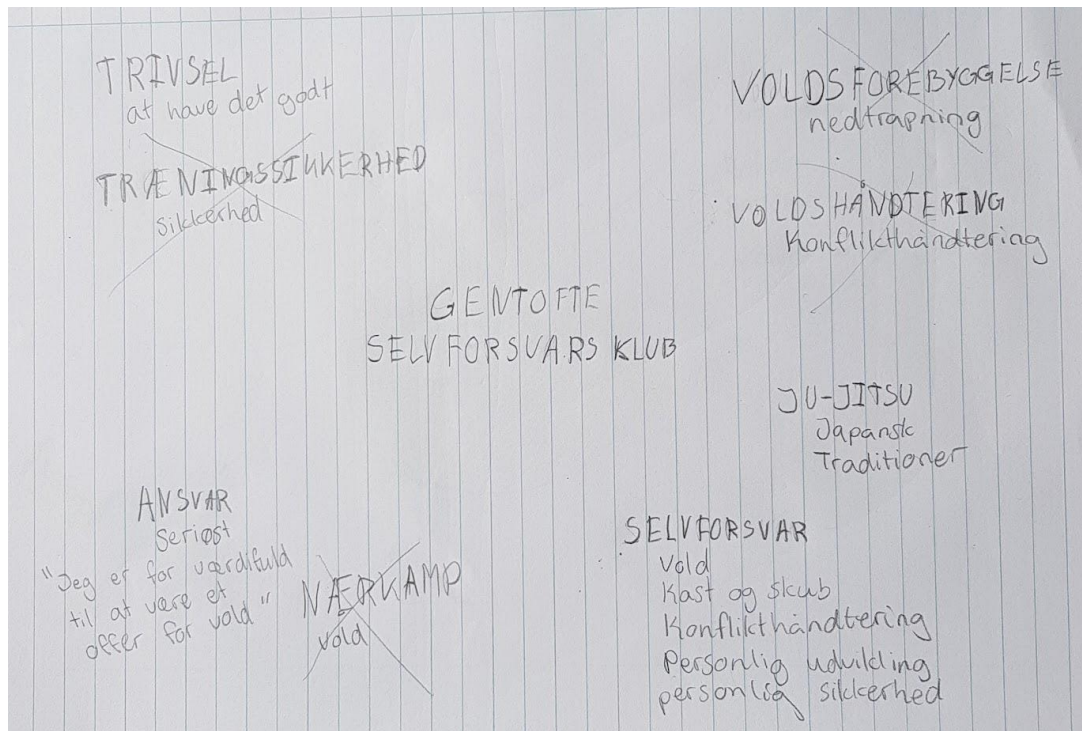 TRIVSEL
at have det godt
TRÆNINGSSIKKERHED
sikkerhed
VOLDSFOREBYGGELSE
nedtrapning
VOLDSHÅNDTERING
Konflikthåndtering
GENTOFTE
SELVFORSVARS KLUB
JU-JITSU
Japansk
Traditioner
ANSVAR
Seriøst
"Jeg er for værdifuld
til at være et
offer for vold"
NÆRKAMP
vold
SELVFORSVAR
Vold
Kast og skub
Konflikthåndtering
Personlig udvikling
personlig sikkerhed